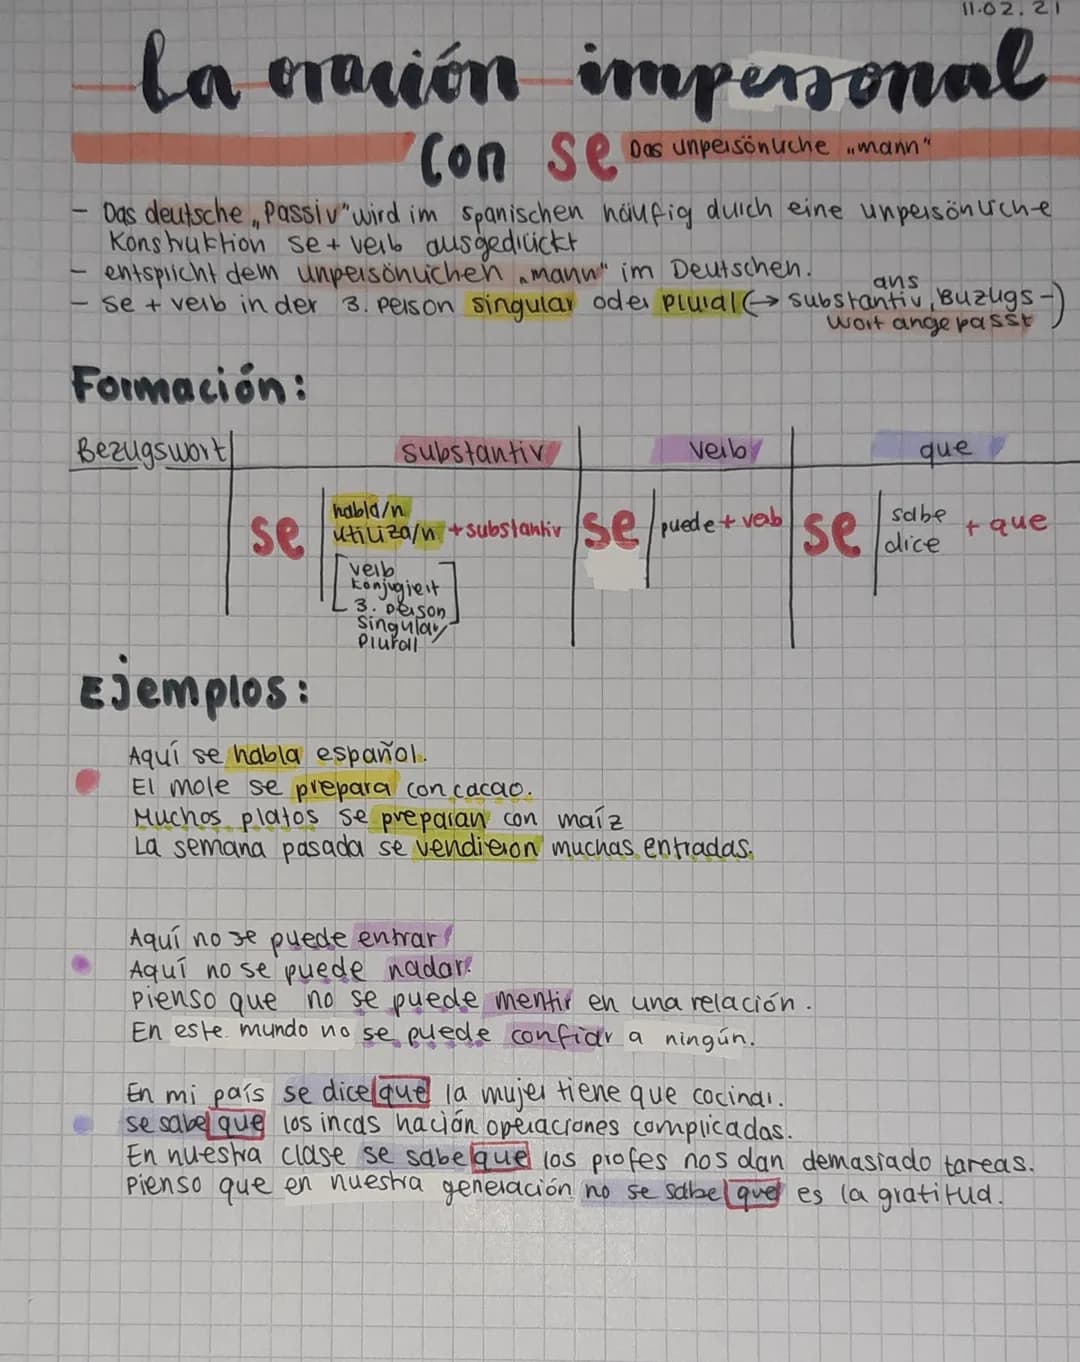 11.02.21
La oración impersonal
Con se Das unpersönliche „mann"
- Das deutsche „Passiv" wird im spanischen häufig durch eine unpersönliche
Konstruktion se + verb ausgedrückt
- entspricht dem unpersönlichen „mann" im Deutschen.
- se + verb in der 3. Person singular oder plural (→ ans substantiv, Buzugs-
wort angepasst)
Formación:
Bezugswort substantiv verb que
se habla/n utiliza/n + substantiv
[verb
konjugiert
3. person
Singular/
Plurall]
se puede + verb
se sabe dice + que
Ejemplos:
Aquí se habla español.
El mole se prepara con cacao.
Muchos platos se preparan con maíz
La semana pasada se vendieron muchas entradas.
Aquí no se puede entrar!
Aquí no se puede nadar!
Pienso que no se puede mentir en una relación.
En este mundo no se puede confiar a ningún.
En mi país se dice que la mujer tiene que cocinar.
se sabe que los incas hación operaciones complicadas.
En nuestra clase se sabe que los profes nos dan demasiado tareas.
Pienso que en nuestra generación no se sabe que es la gratitud.